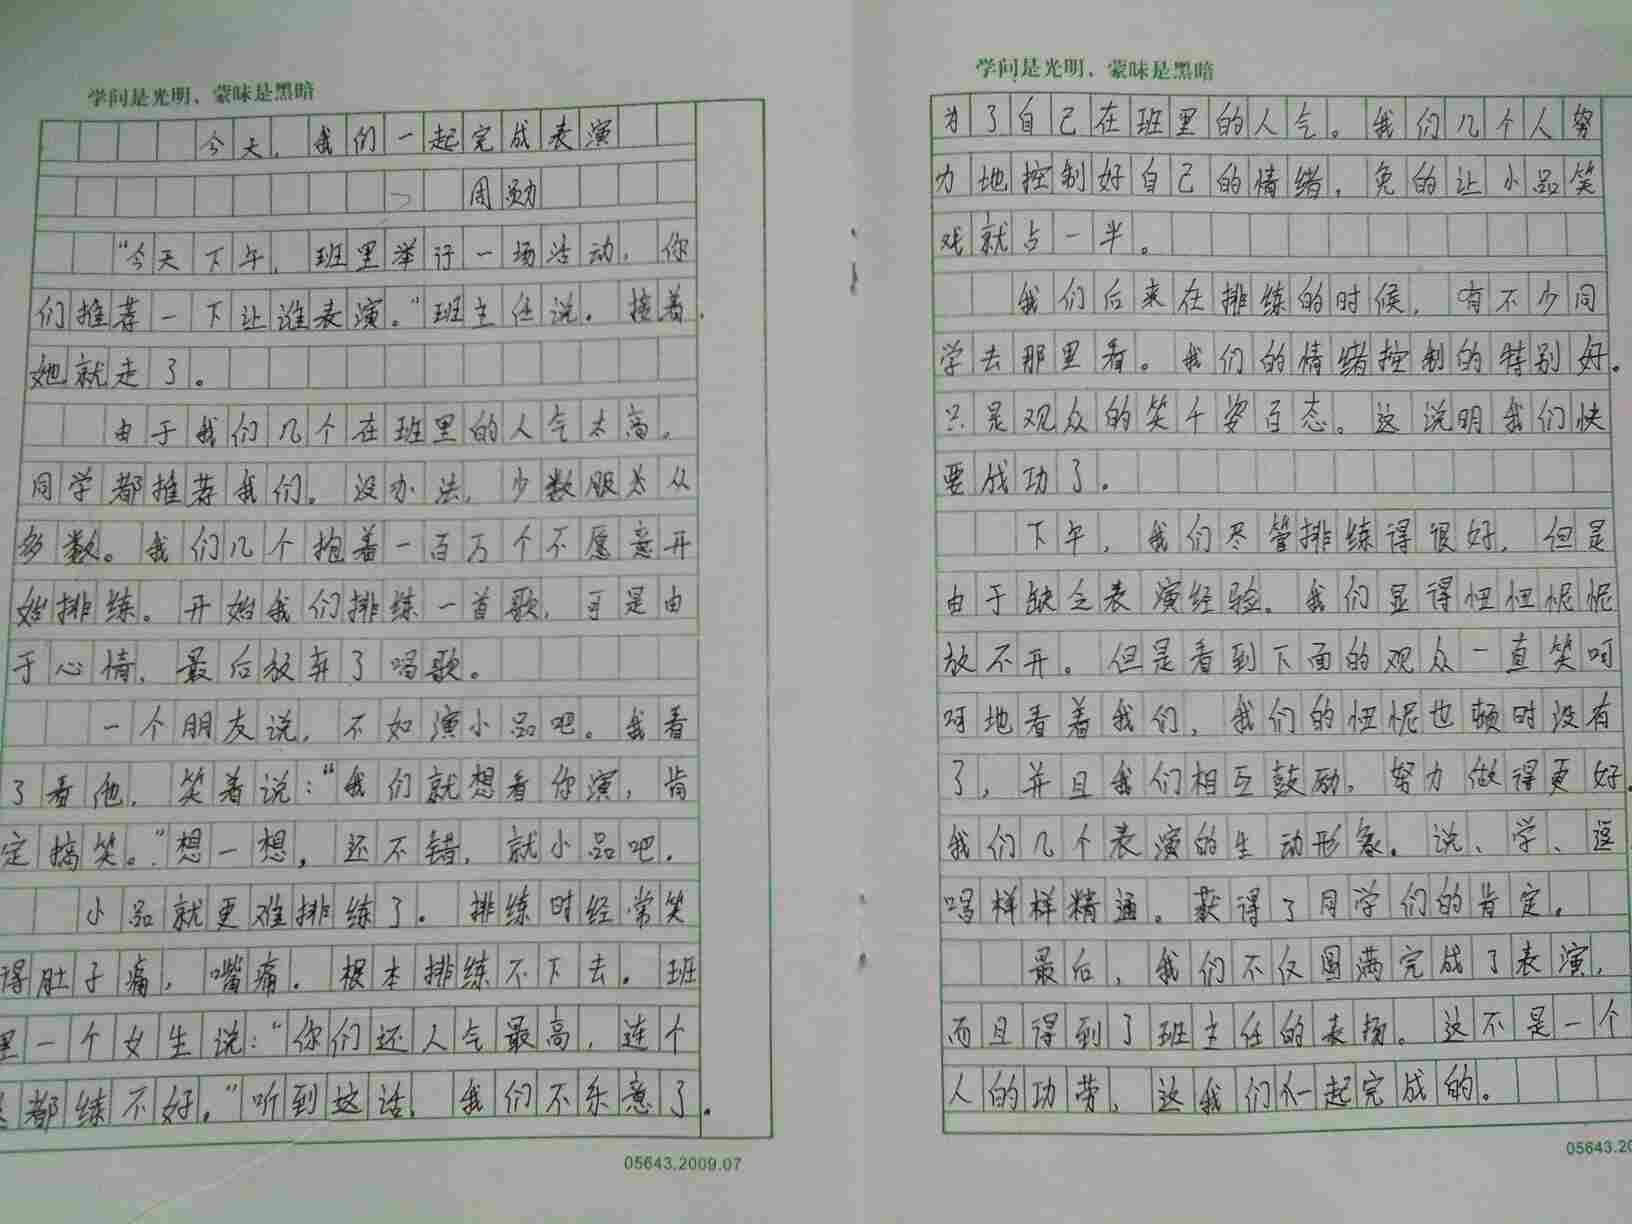 学问是光明，蒙昧是黑暗
今天，我们一起完成表演
周勋
“今天下午，班里举行一场活动，你
们推荐一下让谁表演。”班主任说。接着，
她就走了。
由于我们几个在班里的人气太高，
同学都推荐我们。没办法，少数服从
多数。我们几个抱着一百万个不愿意开
始排练。开始我们排练一首歌，可是由
于心情，最后放弃了唱歌。
一个朋友说，不如演小品吧。我看
了看他，笑着说：“我们就想看你演，肯
定搞笑。”想一想，还不错，就小品吧。
小品就更难排练了。排练时经常笑
得肚子痛，嘴痛。根本排练不下去。班
里一个女生说：“你们还人气最高，连个
都练不好。”听到这话，我们不乐意了。
05643.2009.07
学问是光明，蒙昧是黑暗
为了自己在班里的人气。我们几个人努
力地控制好自己的情绪，免的让小品笑
戏就占一半。
我们后来在排练的时候，有不少同
学去那里看。我们的情绪控制的特别好。
只是观众的笑千姿百态。这说明我们快
要成功了。
下午，我们尽管排练得很好，但是
由于缺乏表演经验，我们显得忸忸怩怩
放不开。但是看到下面的观众一直笑呵
呵地看着我们，我们的忸怩也顿时没有
了，并且我们相互鼓励，努力做得更好。
我们几个表演的生动形象。说、学、逗
唱样样精通。获得了同学们的肯定。
最后，我们不仅圆满完成了表演，
而且得到了班主任的表扬。这不是一个
人的功劳，这我们一起完成的。
05643.20